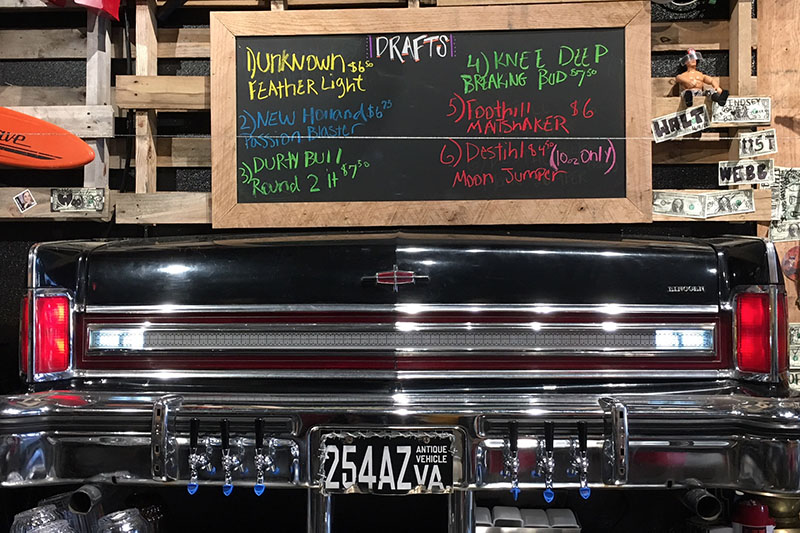 DRAFTS
1) UNKNOWN $6.50
FEATHER LIGHT
2) NEW Holland $6.25
Passion Blaster
3) DURTY BULL
Round 2 it $7.50
4) KNEE DEEP
BREAKING BUD $7.50
5) Foothill $6
MATSHAKER
6) Destihl $4.50 (10oz only)
Moon Jumper
WALT
LINDSEY
WEBB
LINCOLN
254AZ
ANTIQUE
VEHICLE
VA